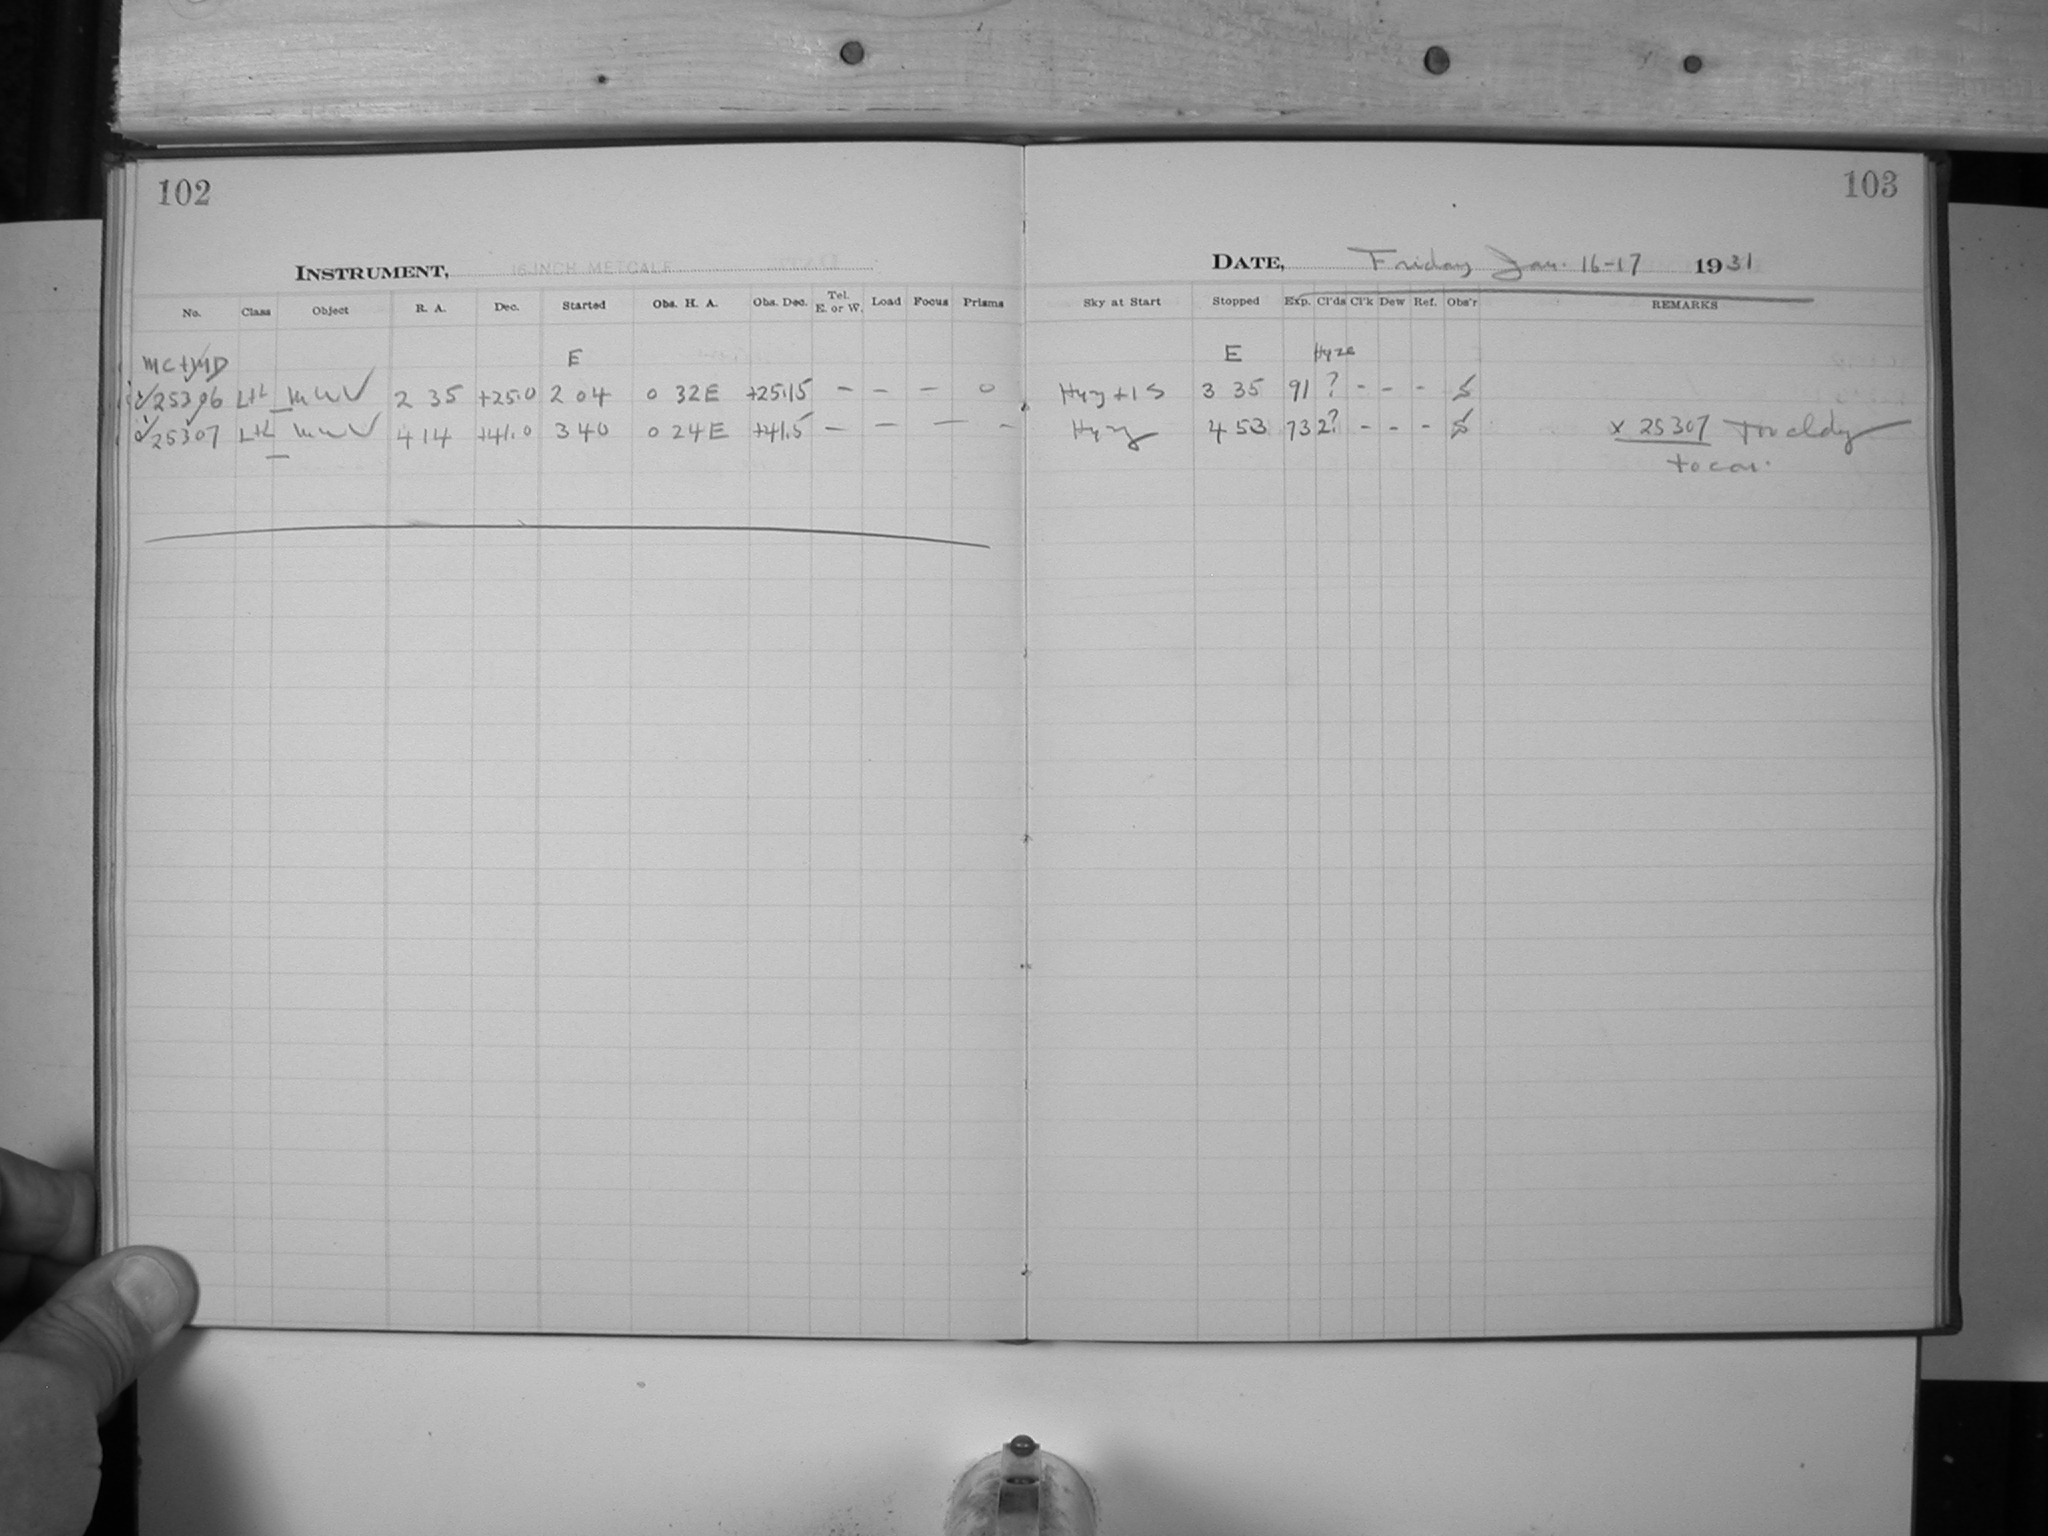 102
103
INSTRUMENT, 16 INCH METCALF
DATE, Friday Jan. 16-17 1931
No. Class Object R. A. Dec. Started Obs. H. A. Obs. Dec. Tel. E. or W. Load Focus Prisms
Sky at Start Stopped Exp. Cl'ds Cl'k Dew Ref. Obs'r REMARKS
MC E
E Hyze
25306 L+L MWV 2 35 +25.0 2 04 0 32E +25.15 – – – 0
Hyzy + LS 3 35 91 ? - - -
25307 L+L MWV 4 14 +41.0 3 40 0 24E +41.5 – – – –
Hyzy 4 53 73 2? - - - x 25307 Too cldy
to con.